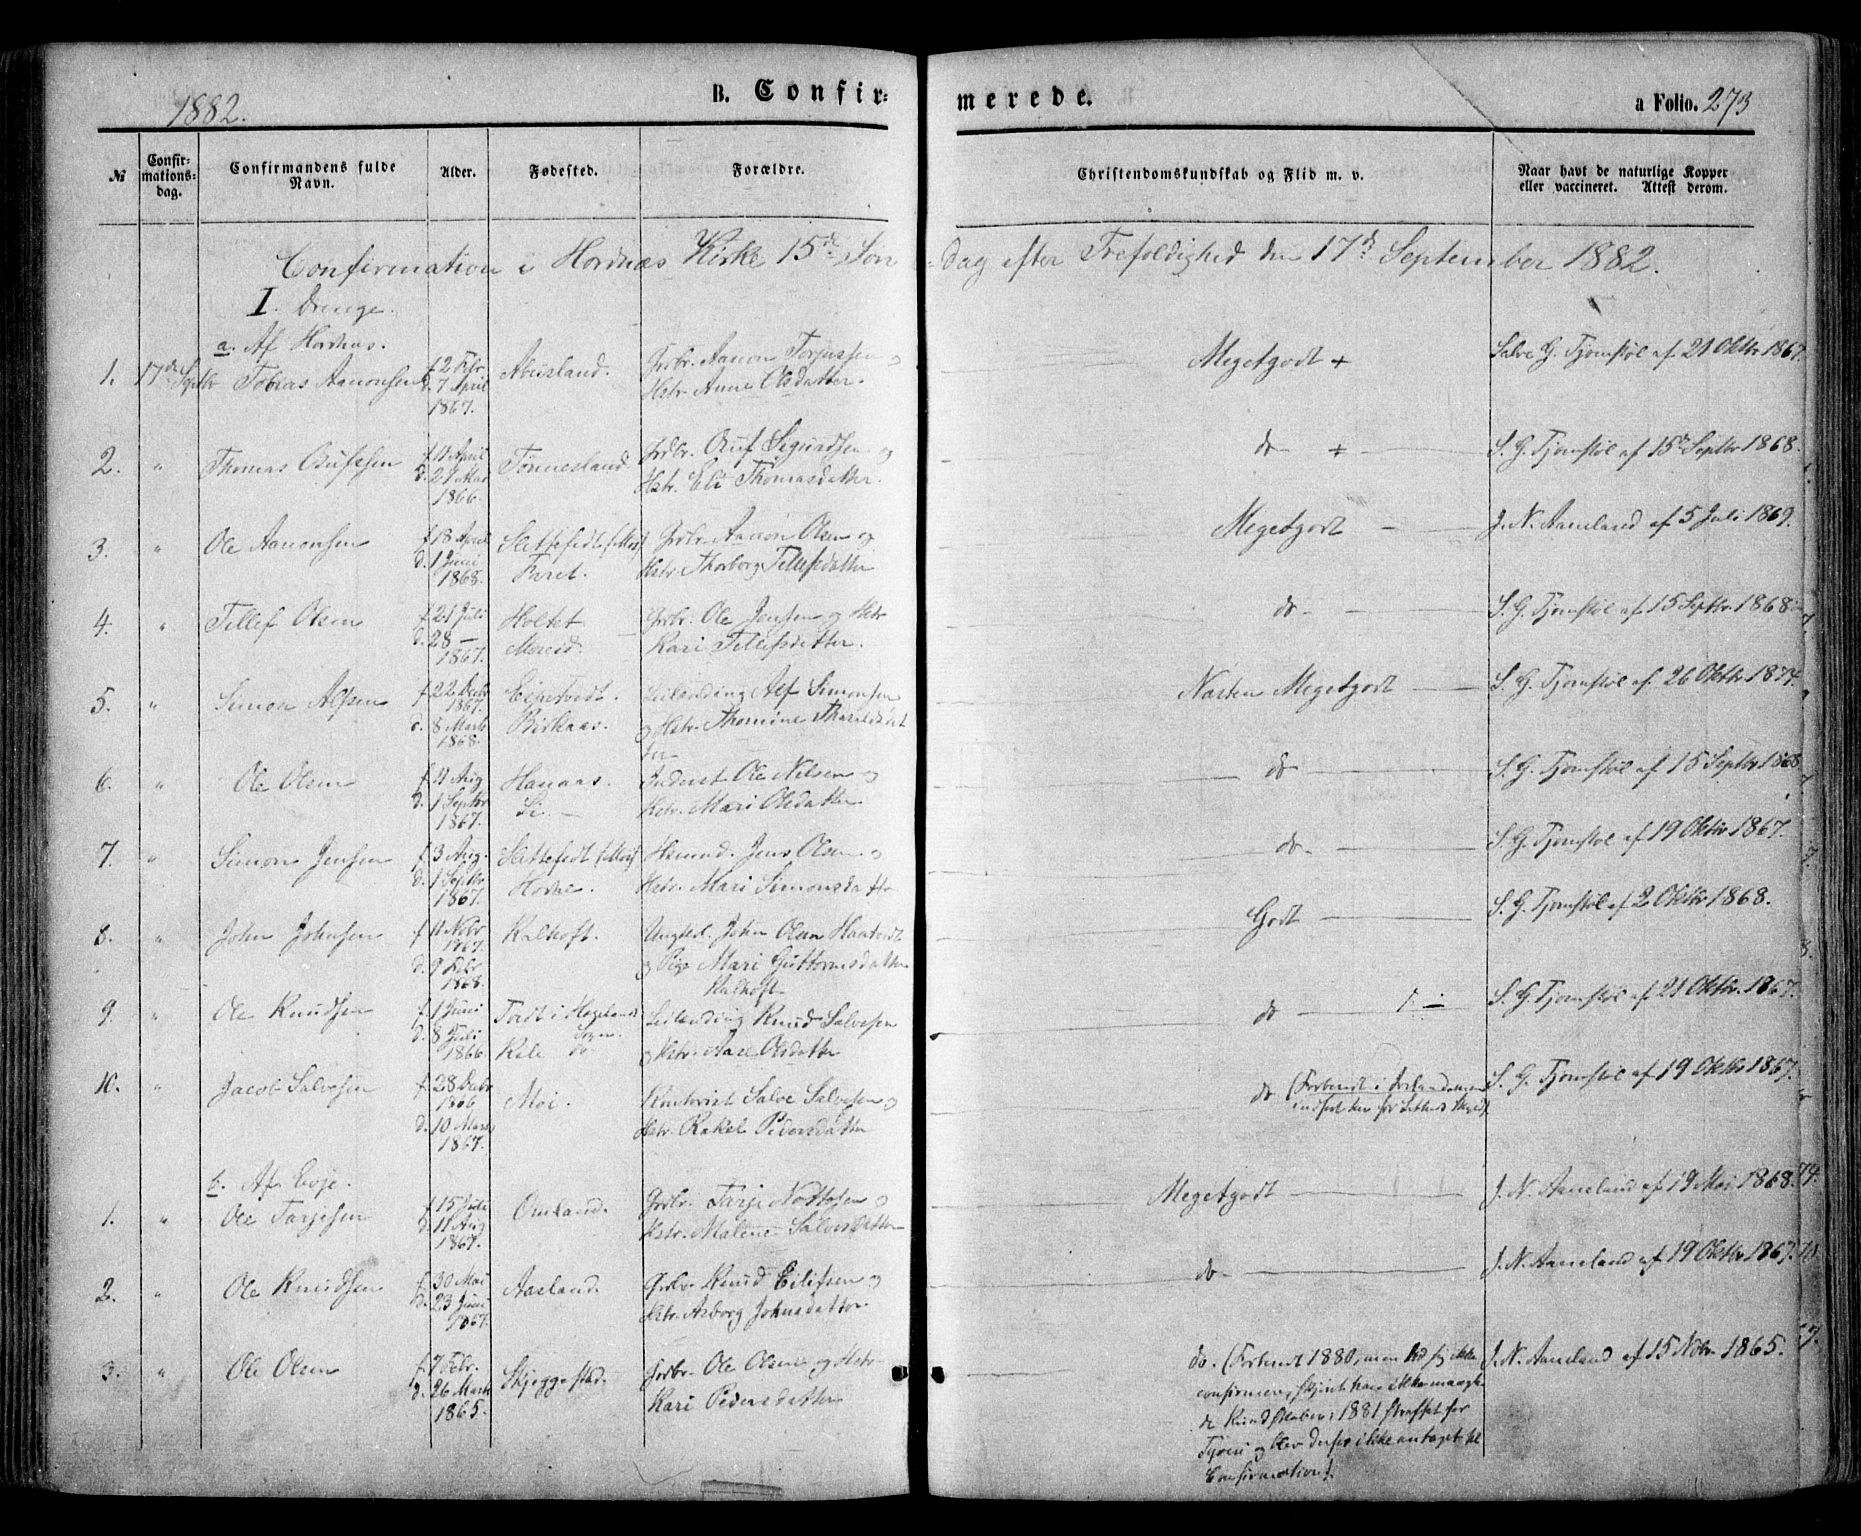 1882.
B. Confir-
merede.
a Folio. 273
№
Confir-
mations-
dag.
Confirmandens fulde
Navn.
Alder.
Fødested.
Forældre.
Christendomskundskab og Flid m. v.
Naar havt de naturlige Kopper
eller vaccineret. Attest derom.
Confirmation i Hordnæs Kirke 15de Søn-
dag efter Trefoldighed den 17de September 1882.
I. Drenge.
a. Af Hordnæs.
1. 17de Septbr Tobias Aanonsen
f. 2 Febr
d. 7 April
1867.
Abusland.
Grdbr. Aanon Torjussen og
Hstr. Anne Olsdatter.
Megetgodt +
Salve G. Tjomstøl af 21 Oktbr 1867.
2. " Thomas
f. 11 April
d. 21 Mai
1866.
Tønnesland.
Grdbr. Sigurdsen og
Hstr. Eli Thomasdatter.
do +
S. G. Tjomstøl af 15de Septbr 1868.
3. " Ole Aanonsen
f. 18 April
d. 1 Juni
1868.
Faret.
Grdbr. Aanon Olsen og
Hstr. Thorborg Tellefsdatter
Megetgodt
J. N. Aaneland af 5 Juli 1869.
4. " Tellef Olsen
f. 21 Juli
d. 28 —
1867.
Holtet
Moseid.
Grdbr. Ole Jenssen og Hstr
Kari Tellefsdatter.
do
S. G. Tjomstøl af 15 Septbr 1868.
5. " Simon Alfsen
f. 22 Decbr
1867.
d. 8 Marts
1868.
Birkaas.
Leilending Alf Simonsen
og Hstr. Thomine Tharaldsdat
ter
Næsten Megetgodt
S. G. Tjomstøl af 26 Oktbr 1874.
6. " Ole Olsen
f. 11 Aug
d. 1 Septbr
1867.
Hanaas.
Inderst Ole Nilsen og
Hstr. Mari Olsdatter
do
S. G. Tjomstøl af 15 Septbr 1868
7. " Simon Jensen
f. 3 Aug.
d. 1 Septbr
1867.
Husmd. Jens Olsen og
Hstr. Mari Simonsdatter
do
S. G. Tjomstøl af 19 Oktbr 1867.
8. " John Johnsen
f. 11 Novbr
1867.
d. 9 Febr
1868.
Kalhoft.
Ungkl. John Olsen Haatvedt
og Pige Mari Guttormsdatter
Kalhoft
Godt
S. G. Tjomstøl af 2 Oktbr 1868.
9. " Ole Knudsen
f. 1 Juni
d. 8 Juli
1866
i Hægelands
Sogn.
do.
Leilending Knud Salvesen
og Hstr. Aase Olsdatter
do
S. G. Tjomstøl af 21 Oktbr. 1867.
10. " Jacob Salvesen
f. 28 Decbr
1866
d. 10 Marts
1867.
Moi.
Salve Salvesen og
Hstr. Rakel Pedersdatter
do
S. G. Tjomstøl af 19 Oktbr 1867.
b. Af Evje.
1. " Ole Tarjesen
f. 15 Juli
d. 11 Aug
1867.
Omland.
Grdbr. Tarje Nottosen og
Hstr. Malene Salvesdatter
Megetgodt
J. N. Aaneland af 19 Mai 1868.
2. " Ole Knudsen
f. 30 Mai
d. 23 Juni
1867.
Aasland.
Grdbr. Knud Eilifsen og
Hstr. Asborg Johnsdatter.
do
J. N. Aaneland af 19 Oktbr 1867.
3. " Ole Olsen
f. 7 Febr.
d. 26 Marts
1865.
Skjeggestad.
Grdbr. Ole Olsen og Hstr
Kari Pedersdatter
do. (Forberedt 1880, men lod sig ikke
confirmere, skjønt han ikke mangle-
de Kundskaber; 1881 straffet for
Tyveri og blev derfor ikke antaget til
Confirmation).
J. N. Aaneland af 15 Novbr 1865.